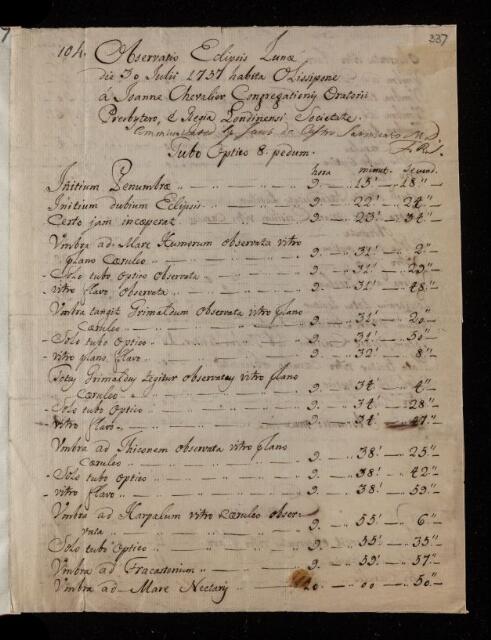 237
104. Observatio Eclipsis Lunæ
die 30 Julii 1757 habita Olissipone
á Joanne Chevalier Congregationis Oratorii
Presbytero, & Regia Londinensi Societate.
Communicated by Jacob de Castro Sarmento M.D.
F.R.S.
Tubo Optico 8. pedum.
hora minut. secund.
Initium Penumbræ 9. 15' 18"
Initium dubium Eclipsis 9. 22' 24"
Certo jam inceperat 9. 23' 34"
Vmbra ad Mare Humorum observata vitro
plano Cæruleo 9. 31' 2"
Solo tubo optico observata 9. 31' 29"
vitro flavo observata 9. 31' 48"
Vmbra tangit Grimaldum observata vitro plano
Cæruleo 9. 31' 20"
Solo tubo optico 9. 31' 50"
vitro plano flavo 9. 32' 8"
Totus Grimaldus tegitur observatus vitro plano
Cæruleo 9. 34' 4"
Solo tubo Optico 9. 34' 28"
Vitro flavo 9. 34' 47"
Vmbra ad Thiconem observata vitro plano
Cæruleo 9. 38' 25"
Solo tubo Optico 9. 38' 42"
vitro flavo 9. 38' 59"
Vmbra ad Harpalum vitro cæruleo obser-
vata 9. 55' 6"
Solo tubo optico 9. 55' 35"
Vmbra ad Fracastorium 9. 59' 57"
Vmbra ad Mare Nectaris 10. 00 50"